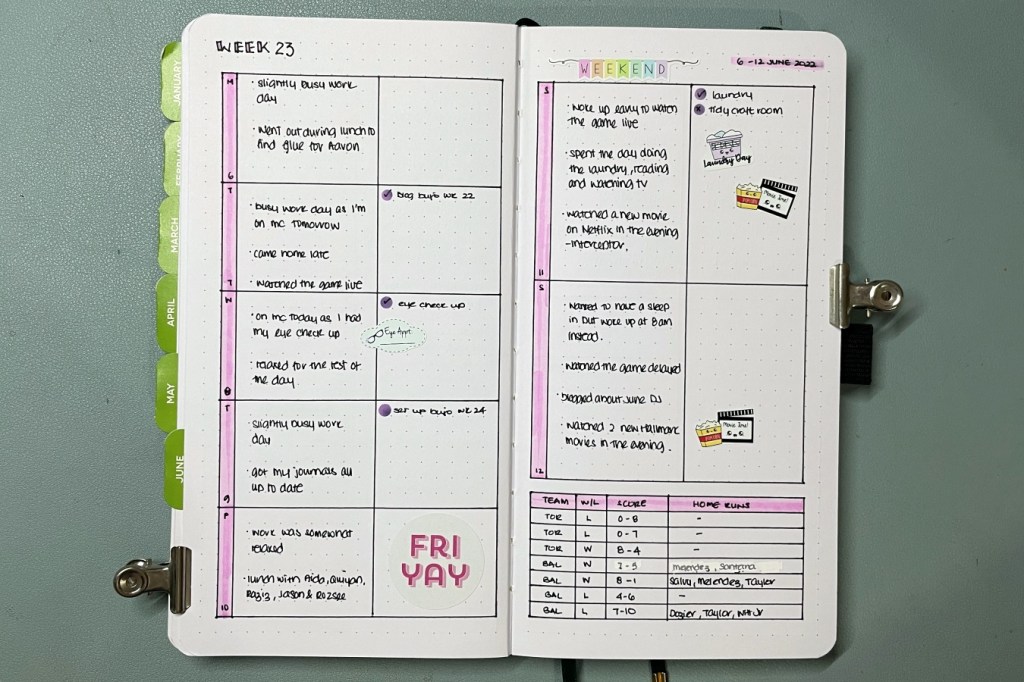 WEEK 23
JANUARY
FEBRUARY
MARCH
APRIL
MAY
JUNE
M
· slightly busy work
day
· went out during lunch to
find glue for Aavon
6
T
· busy work day as I'm
on mc tomorrow
· came home late
· watched the game live
7
✓ blog bujo wk 22
W
· on mc today as I had
my eye check up
· relaxed for the rest of
the day
8
✓ eye check up
Eye Appt.
T
· slightly busy work
day
· got my journals all
up to date
9
set up bujo wk 24
F
· work was somewhat
relaxed
· lunch with Aida,
Raziz, Jason & Rozsee
10
FRI
YAY
WEEKEND
6 - 12 JUNE 2022
S
· woke up early to watch
the game live
· spent the day doing
the laundry, reading
and watching tv
· watched a new movie
on Netflix in the evening
- Interceptor.
11
✓ laundry
x tidy craft room
Laundry Day
Movie Time!
S
· wanted to have a sleep
in but woke up at 8am
instead.
· watched the game delayed
· blogged about June DJ
· watched 2 new Hallmark
movies in the evening.
12
Movie Time!
TEAM W/L SCORE HOME RUNS
TOR L 0-8 -
TOR L 0-7 -
TOR W 8-4 -
BAL W 7-5 Melendez, Santana
BAL W 8-1 Salvy, Melendez, Taylor
BAL L 4-6 -
BAL L 7-10 Dozier, Taylor,